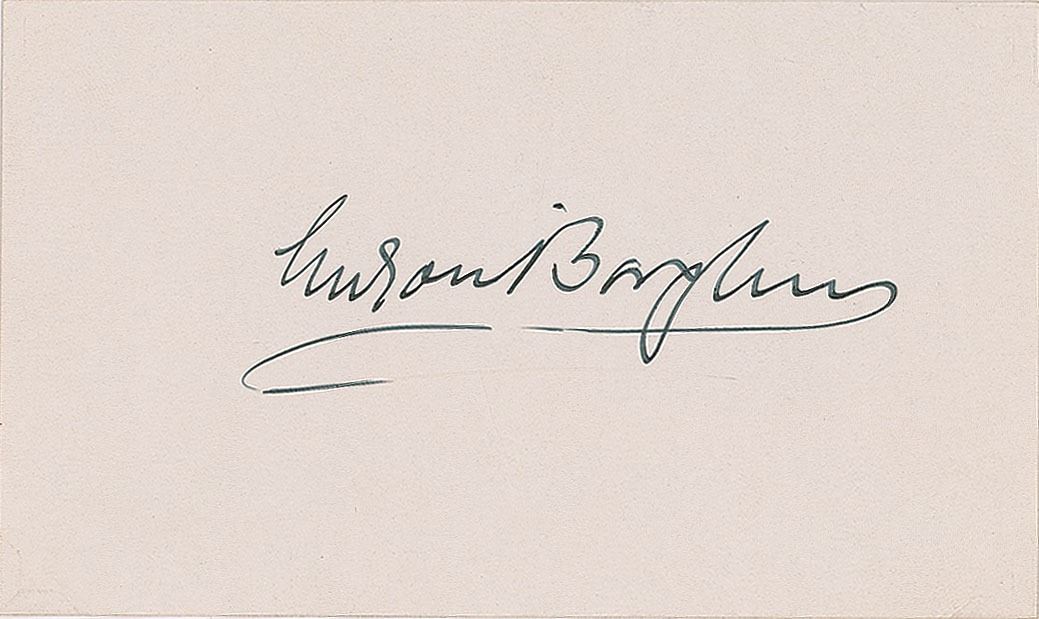 Gutzon Borglum